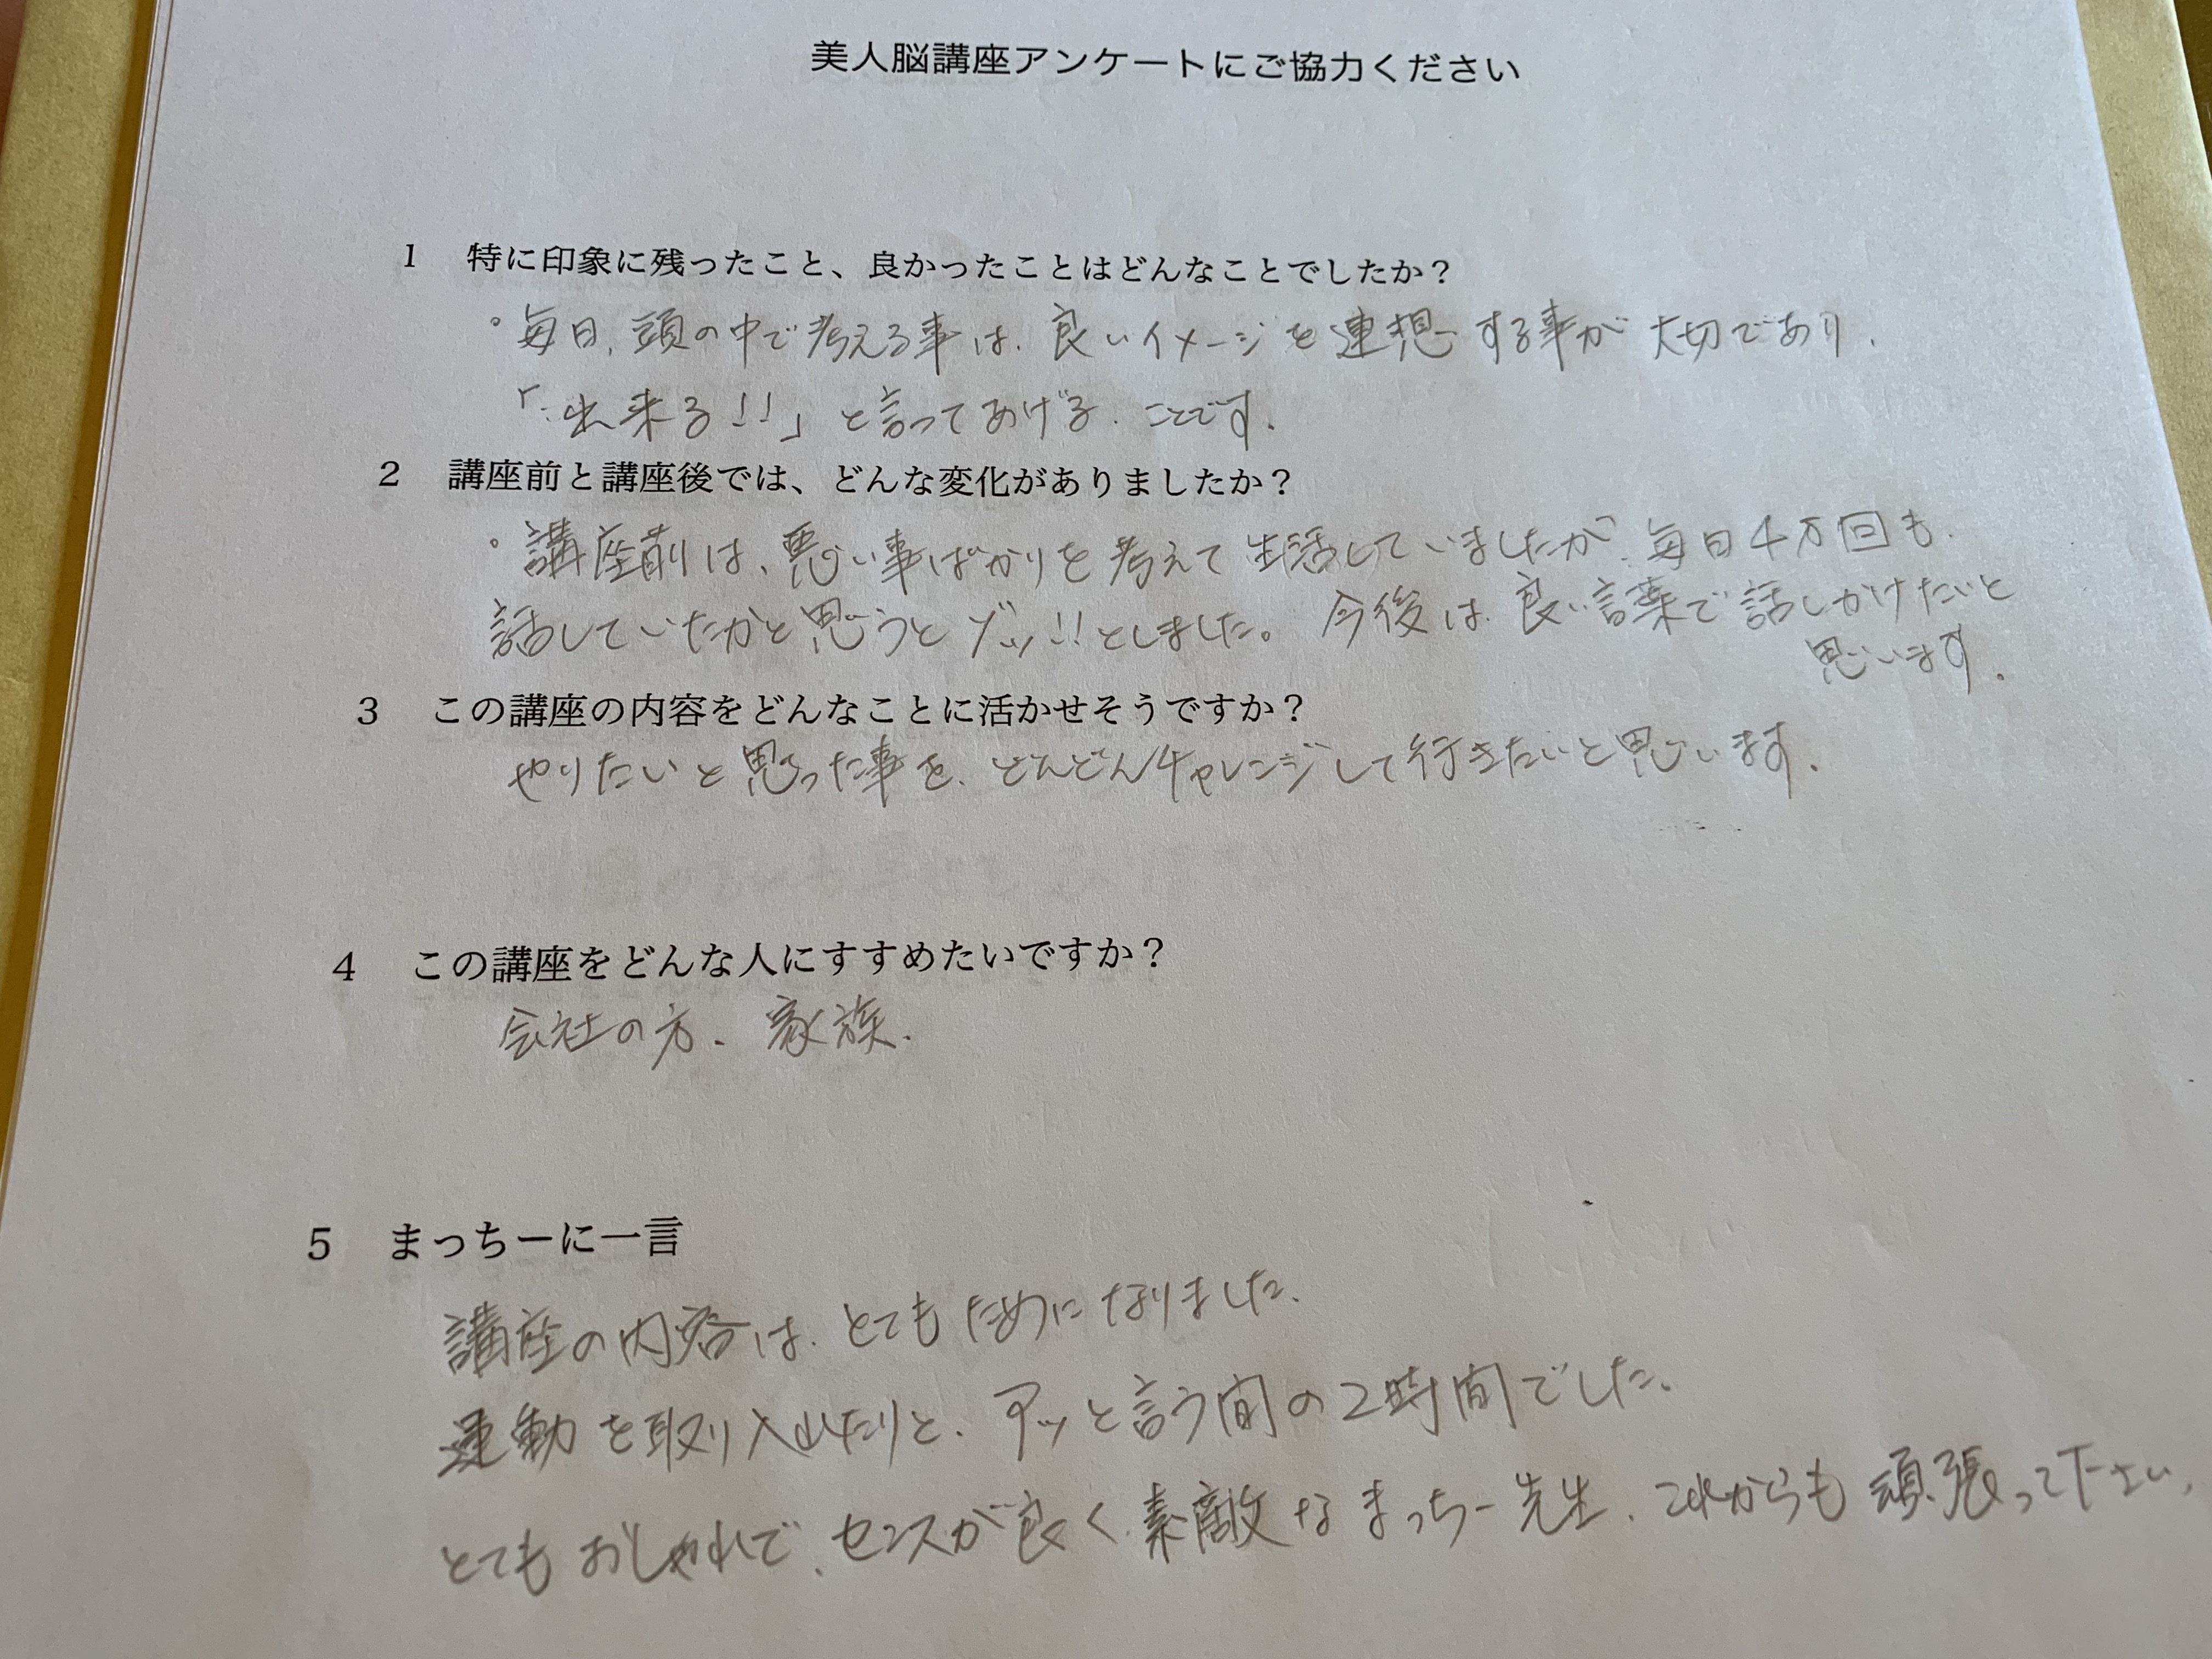 美人脳講座アンケートにご協力ください
1 特に印象に残ったこと、良かったことはどんなことでしたか？
。毎日、頭の中で考える事は、良いイメージを連想する事が大切であり、
「出来る!!」と言ってあげることです。
2 講座前と講座後では、どんな変化がありましたか？
。講座前は、悪い事ばかりを考えて生活していましたが、毎日4万回も
話していたかと思うとゾッ!!としました。今後は良い言葉で話しかけたいと
思います。
3 この講座の内容をどんなことに活かせそうですか？
やりたいと思った事を、どんどんチャレンジして行きたいと思います。
4 この講座をどんな人にすすめたいですか？
会社の方、家族、
5 まっちーに一言
講座の内容は、とてもためになりました。
運動を取り入れたりと、アッと言う間の2時間でした。
とてもおしゃれで、センスが良く、素敵なまっちー先生、これからも頑張って下さい、